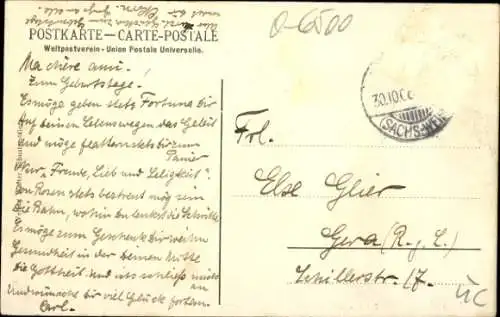 POSTKARTE — CARTE-POSTALE
Weltpostverein - Union Postale Universelle.
0-6500
Ma chère ami!
Zum Geburtstage.
Es möge geben stets Fortuna dir
Auf deinen Lebenswegen das Geleit
und möge flattern stets dir zum
Panier
Nur „Freude, Lieb und Seligkeit".
Von Rosen stets bestreut mög sein
die Bahn, wohin du lenkst die Schritte
Es möge zum Geschenk dir weihn
Gesundheit in der deinen Mitte
die Gottheit. Und ich schließ mich
an
Und wünsche dir viel Glück fortan.
Carl.
30.10.0
(SACHS-WEI
Frl.
Else Glier
Gera (R. j. L.)
Schillerstr. 17.
UC